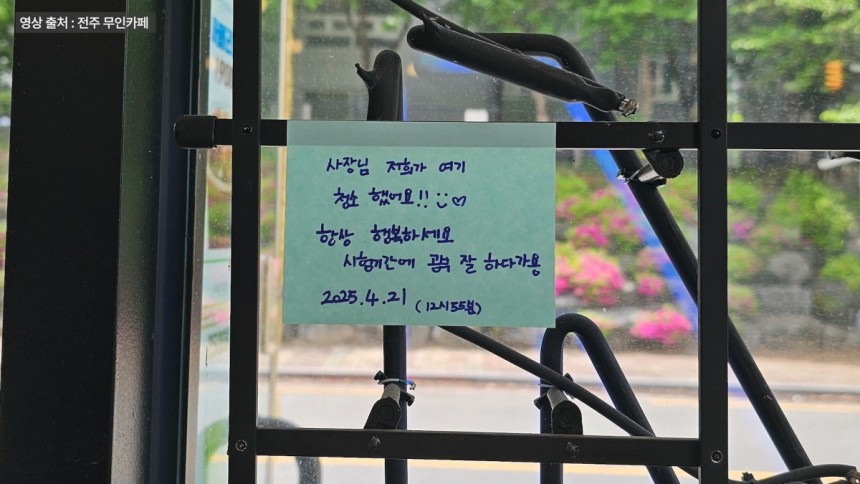 영상 출처 : 전주 무인카페
사장님 저희가 여기
청소 했어요!! :) ♡
항상 행복하세요
시험기간에 공부 잘 하다가용
2025.4.21 (12시55분)